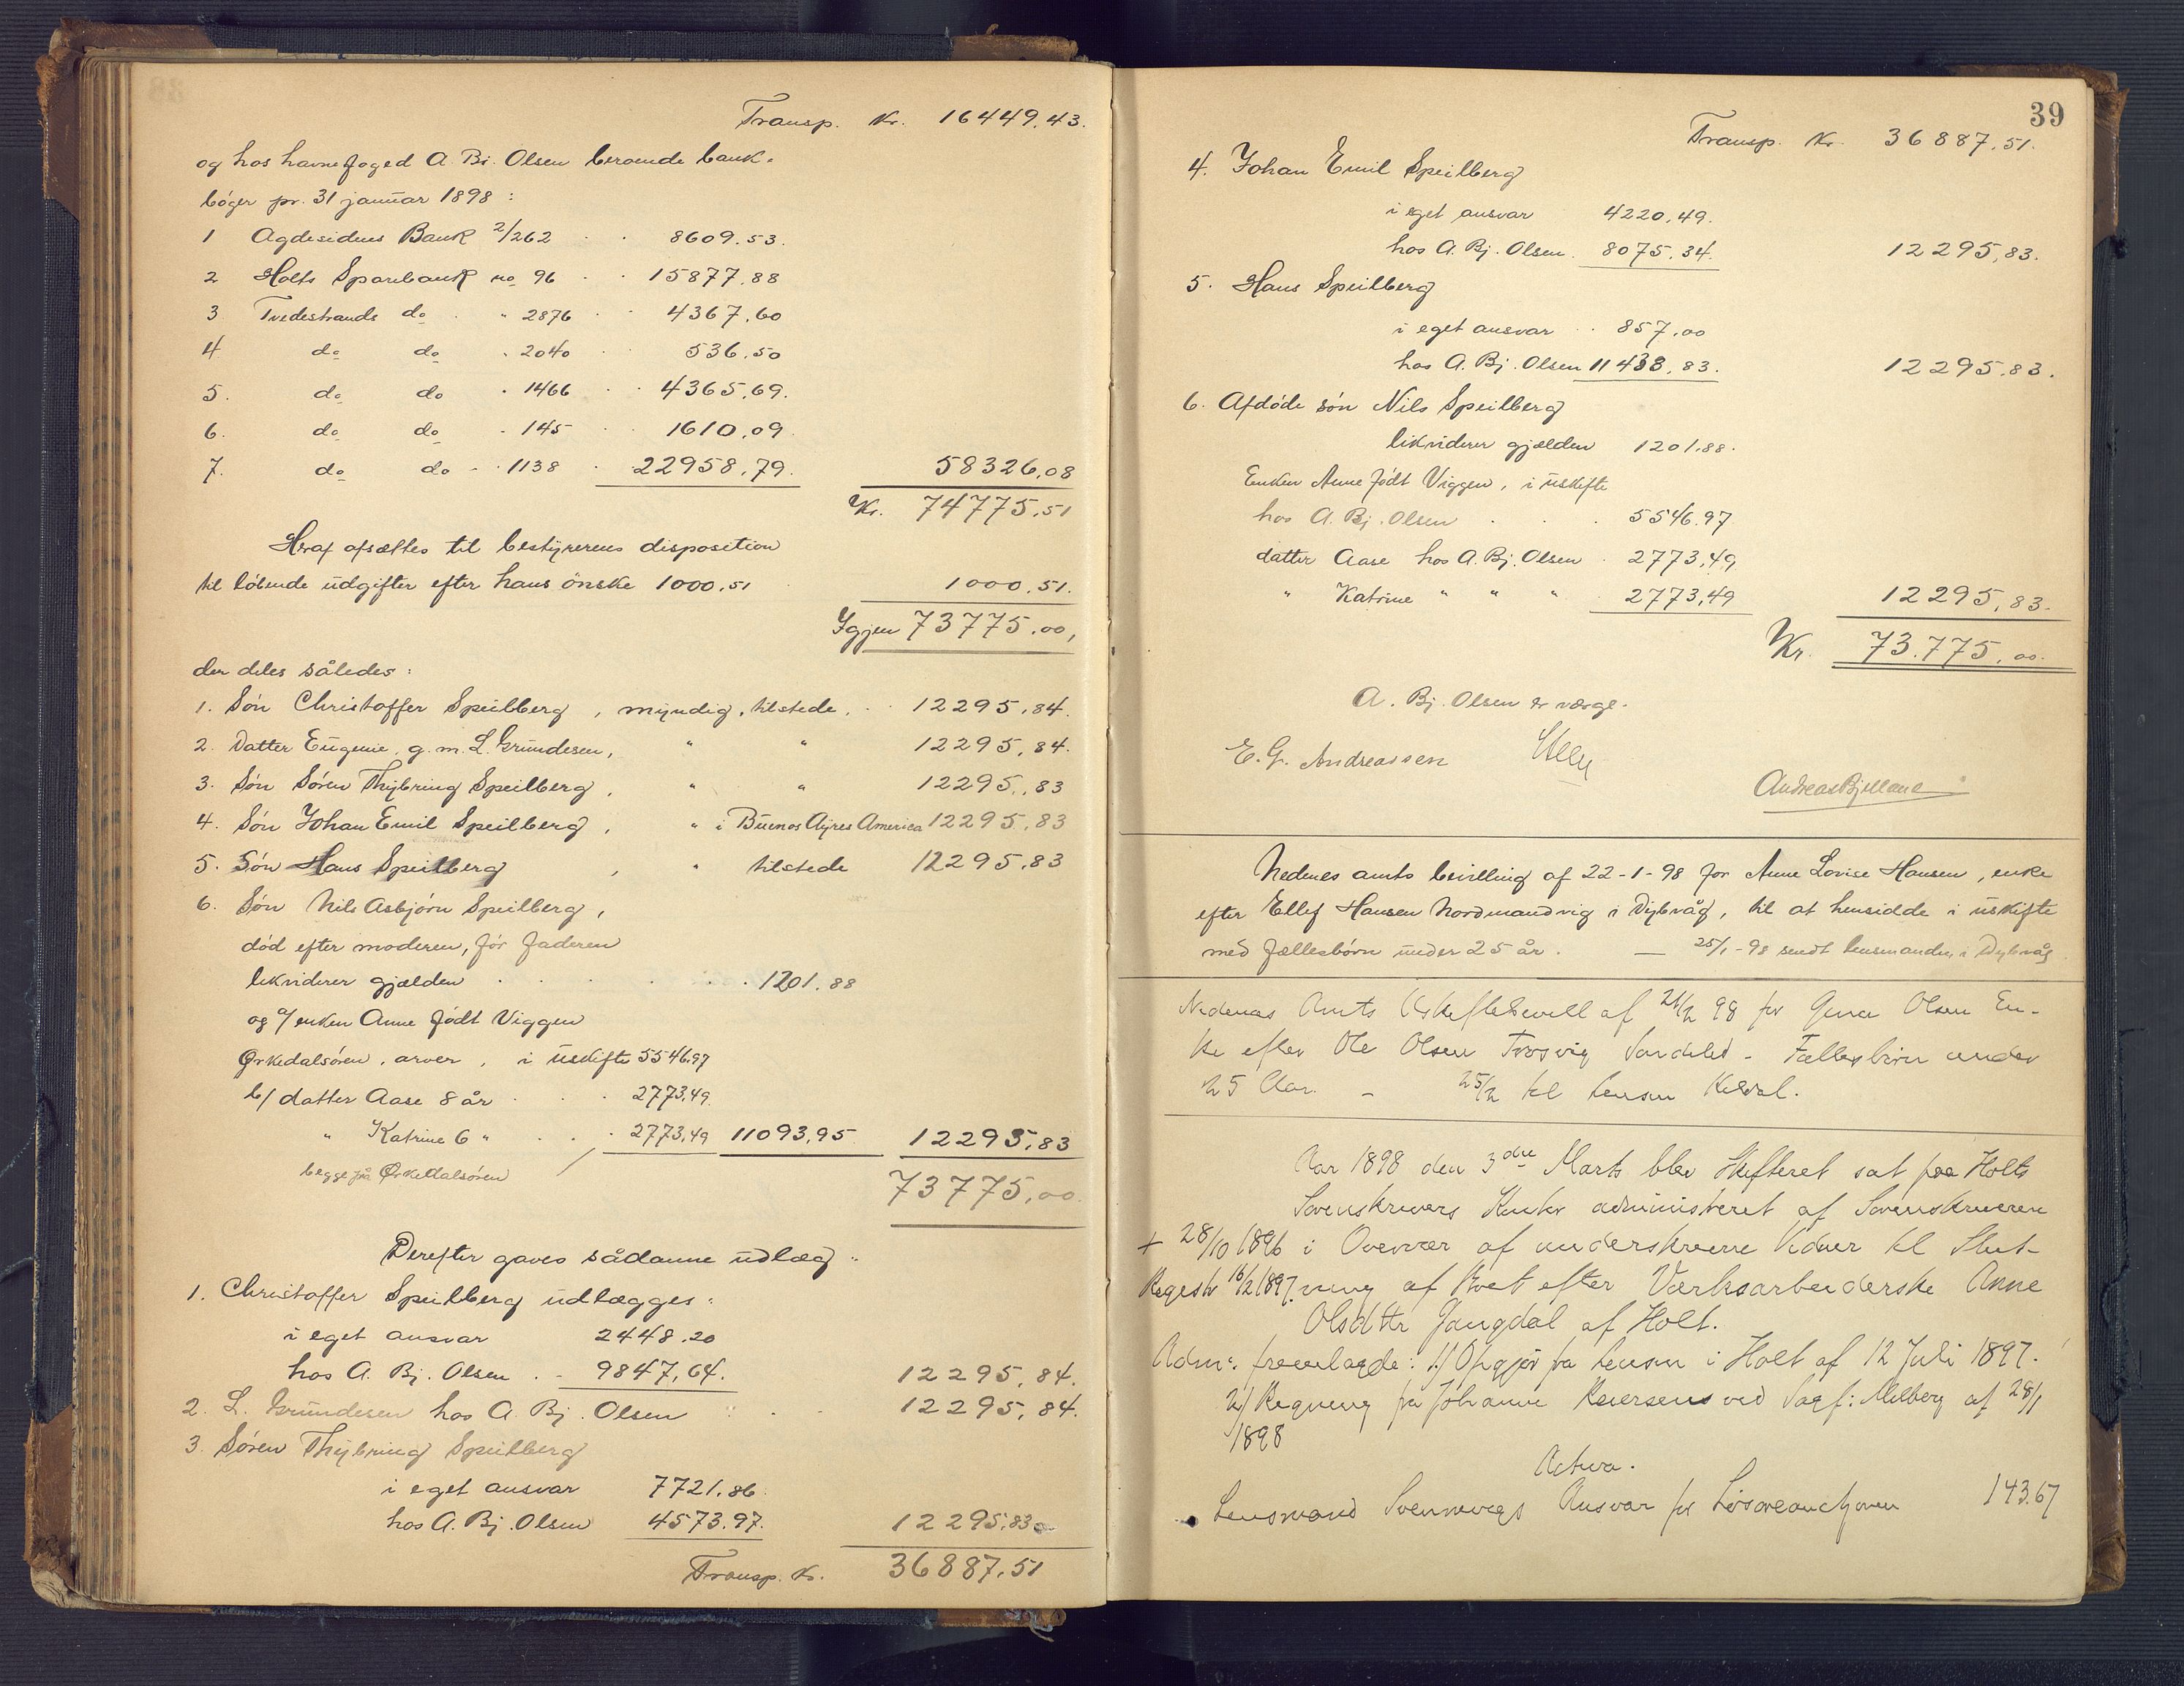 Transp. Kr. 16449.43.
og hos havnefoged A. Bj. Olsen beroende bank-
böger pr. 31 januar 1898 :
1 Agdesidens Bank 2/262 8609.53.
2 Holts Sparebank no 96 15877.88
3 Tvedestrands do " 2876 4367.60
4 do do " 2040 536.50
5. do do " 1466 4365.69.
6. do do " 145 1610.09
7. do do " 1138 22958.79. 58326.08
Kr. 74775.51
Heraf afsættes til bestyrerens disposition
til löbende udgifter efter hans önske 1000.51 1000.51.
Igjen 73775.00,
der deles således :
1. Sön Christoffer Speilberg, myndig, tilstede, 12295.84.
2. Datter Eugenie, g. m. L. Gundesen, " " 12295,84.
3. Sön Sören Thybring Speilberg, " " 12295.83
4. Sön Johan Emil Speilberg, " i Buenos Ayres America 12295.83
5. Sön Hans Speilberg, " tilstede 12295.83
6. Sön Nils Asbjörn Speilberg,
död efter moderen, för faderen
likviderer gjælden 1201.88
og a/ enken Anne födt Viggen
Örkedalsören, arver, i uskifte 5546.97
b/ datter Aase 8 år 2773.49
" Katrine 6 " 2773,49 11093,95 12295,83
begge på Örkedalsören
73775,00.
Derefter gaves sådanne udlæg :
1. Christoffer Speilberg udlægges :
i eget ansvar 2448.20
hos A. Bj. Olsen 9847,64. 12295,84.
2. L. Gundesen hos A. Bj. Olsen 12295,84.
3. Sören Thybring Speilberg
i eget ansvar 7721.86
hos A. Bj. Olsen 4573.97. 12295.83
Transp. Kr. 36887.51
39
Transp. Kr. 36887.51.
4. Johan Emil Speilberg
i eget ansvar 4220.49.
hos A. Bj. Olsen 8075.34. 12295,83.
5. Hans Speilberg
i eget ansvar 857.00
hos A. Bj. Olsen 11438.83. 12295.83.
6. Afdöde sön Nils Speilberg
likviderer gjælden 1201.88.
Enken Anne födt Viggen, i uskifte
hos A. Bj. Olsen 5546.97
datter Aase hos A. Bj. Olsen 2773,49
" Katrine " " " 2773,49 12295,83.
Kr. 73.775,00.
A. Bj. Olsen er værge.
E. G. Andreassen
Nedenes amts bevilling af 22-1-98 for Anne Lovise Hansen, enke
efter Ellef Hansen Nordmandvig i Dybvåg, til at hensidde i uskifte
med fællesbörn under 25 år. — 25/1-98 sendt lensmanden i Dybvåg
Nedenæs Amts Uskiftebevill af 21/2 98 for Gunu Olsen En-
ke efter Ole Olsen Trosvig Søndeled - Fællesbørn under
25 Aar. - 25/2 til lensm
Aar 1898 den 3die Marts blev Skifteret sat paa Holts
Sorenskrivers Kontor administreret af Sorenskriveren
+ 28/10 1896 i Overvær af underskrevne Vidner til Slut-
Registr 16/2 1897. ning af Boet efter Værksarbeiderske Anne
Olsdttr Gangdal af Holt.
Adm: fremlagde: 1) Opgjør fra Lensm i Holt af 12 Juli 1897.
2/ Regning fra Johanne Reiersens ved Sagf: af 28/1
1898
Activa.
Lensmand Ansvar for 143.67